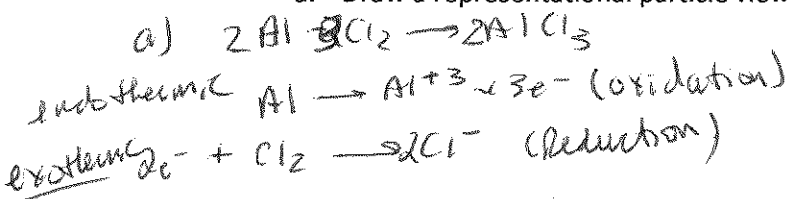 Draw a representational particle view
a) 2 Al 3Cl2 → 2AlCl3
endothermic Al → Al+3 + 3e- (oxidation)
exothermic 2e- + Cl2 → 2Cl- (Reduction)